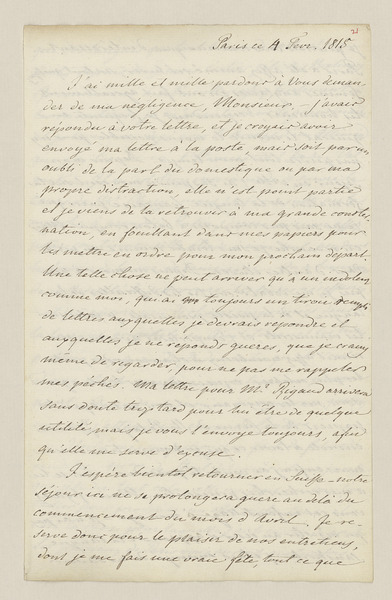 2
Paris ce 4 Fevr. 1815
J'ai mille et mille pardons à Vous deman-
der de ma negligence, Monsieur, – j'avais
répondu à votre lettre, et je croyais avoir
envoyé ma lettre à la poste, mais soit par un
oubli de la part du domestique ou par ma
propre distraction, elle n'est point partie
et je viens de la retrouver à ma grande conster-
nation, en fouillant dans mes papiers pour
les mettre en ordre pour mon prochain départ.
Une telle chose ne peut arriver qu'à un indolent
comme moi, qui ai toujours un tiroir rempli
de lettres auxquelles je devrais repondre et
auxquelles je ne réponds gueres, que je crains
même de regarder, pour ne pas me rappeler
mes péchés. Ma lettre pour Mr. Rigaud arrivera
sans doute trop tard pour lui être de quelque
utilité, mais je vous l'envoye toujours, afin
qu'elle me serve d'excuse.
J'espère bientôt retourner en Suisse – notre
séjour ici ne se prolongera guere au delà du
commencement du mois d'Avril. Je re-
serve donc pour le plaisir de nos entretiens,
dont je me fais une vraie fête, tout ce que